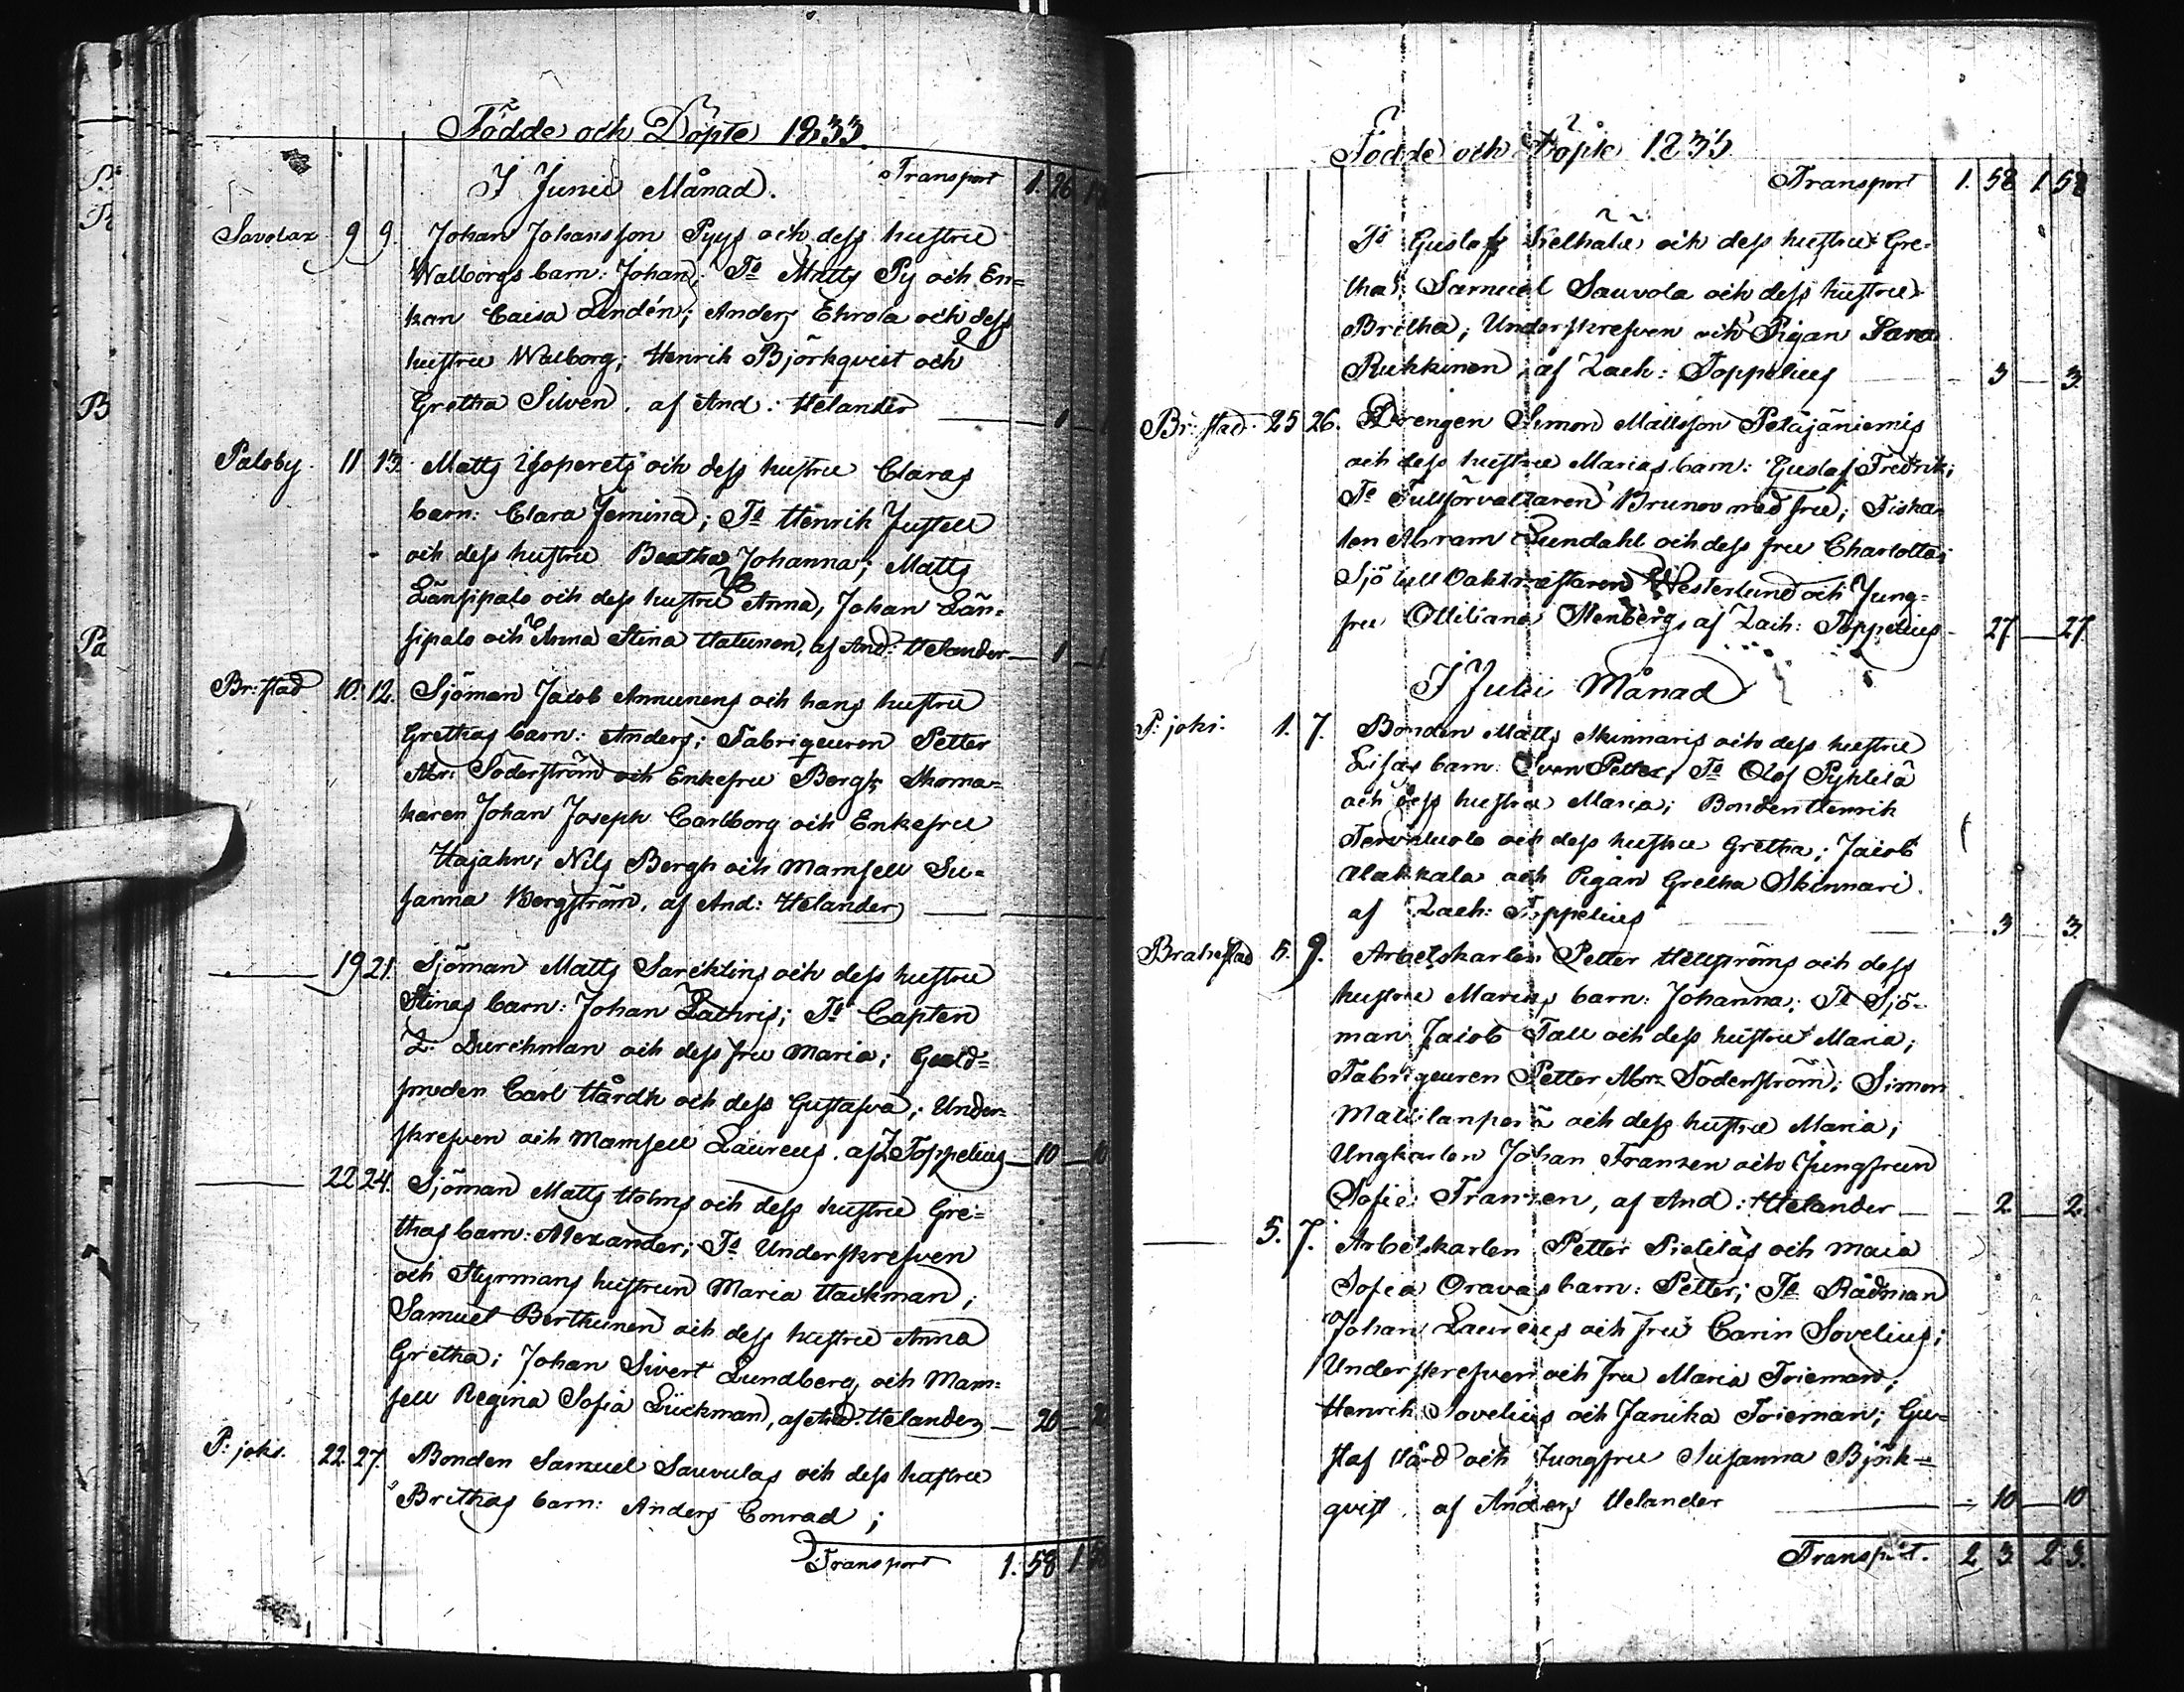 Födde och Döpte 1833.
I Junii Månad. Transport 1. 26
Savolax 9 9. Johan Johansson Pyys och dess hustru
Walborgs barn: Johan; Ts Matts Py och En=
kan Caisa Lindén; Anders Ehrola och dess
hustru Walborg; Henrik Björkqvist och
Gretha Silven. af And: Helander — 1
Paloby. 11 13. Matts och dess hustru Claras
barn: Clara Jemina; Ts Henrik Justell
och dess hustru Beatha Johanna; Matts
Länsipalo och dess hustru Anna, Johan Län=
sipalo och Anna Stina Hatunen, af And: Helander — 1
Br: stad 10. 12. Sjöman Jacob Annunens och hans hustru
Grethas barn: Anders; Fabriqeuren Petter
Abr: Söderström och Enkefru Bergh; Skoma=
karen Johan Joseph Carlborg och Enkefru
Hajahn; Nils Bergh och Mamsell Su=
sanna Bergström, af And: Helander —
— 19 21. Sjöman Matts Sarcklins och dess hustru
Stinas barn: Johan Zachris; Ts Capten
Z: Durchman och dess fru Maria; Guld=
smeden Carl Hårdh och dess Gustafva; Under=
skrefven och Mamsell Laureus. af Z Toppelius — 10 — 10
— 22 24. Sjöman Matts Holms och dess hustru Gre=
thas barn: Alexander; Ts Underskrefven
och Styrmans hustrun Maria Hackman;
Samuel Berthunen och dess hustru Anna
Gretha; Johan Sivert Lundberg och Mam=
sell Regina Sofia Lückman, af And: Helander — 20 —
P: joki. 22. 27. Bonden Samuel Sauvulas och dess hustru
Brithas barn: Anders Conrad;
Transport 1. 58
Födde och Döpte 1833
Transport 1. 58 1 58
Ts Gustaf och dess hustru Gre=
tha; Samuel Sauvola och dess hustru
Britha; Underskrefven och Pigan Sara
Rukkinen, af Zach: Toppelius — 3 — 3.
Br: stad. 25 26. Drengen Simon Mattsson Petäjäniemis
och dess hustru Marias barn: Gustaf Fredrik;
Ts Tullförvaltaren Brunov med fru; Fiska=
len Abram Lundahl och dess fru Charlotta;
Sjötull Vaktmästaren Westerlund och Jung=
fru Ottiliana Stenberg, af Zach: Toppelius — 27 — 27
I Julii Månad
P: joki. 1. 7. Bonden Matts Skinnaris och dess hustru
Lisas barn: Sven Petter, Ts Olof Pyhtilä
och dess hustru Maria; Bonden Henrik
Tervaluoto och dess hustru Gretha; Jacob
Alakkala och Pigan Gretha Skinnari.
af Zach: Toppelius — 3 — 3.
Brahestad 5. 9. Arbetskarlen Petter Hellströms och dess
hustru Marias barn: Johanna; Ts Sjö=
man Jacob Tall och dess hustru Maria;
Fabriqeuren Petter Abr: Söderström; Simon
Mattilanperä och dess hustru Maria;
Ungkarlen Johan Franzen och Jungfrun
Sofie Franzen, af And: Helander — 2 — 2
— 5. 7. Arbetskarlen Petter Pietiläs och Maia
Sofia Oravas barn: Petter; Ts Rådman
Johan Laureus och Fru Carin Sovelius;
Underskrefven och Fru Maria Frieman;
Henrik Sovelius och Janika Frieman; Gu=
staf Hård och Jungfru Susanna Björk=
qvist af Anders Helander — 10 — 10
Transport. 2 3 2 3.